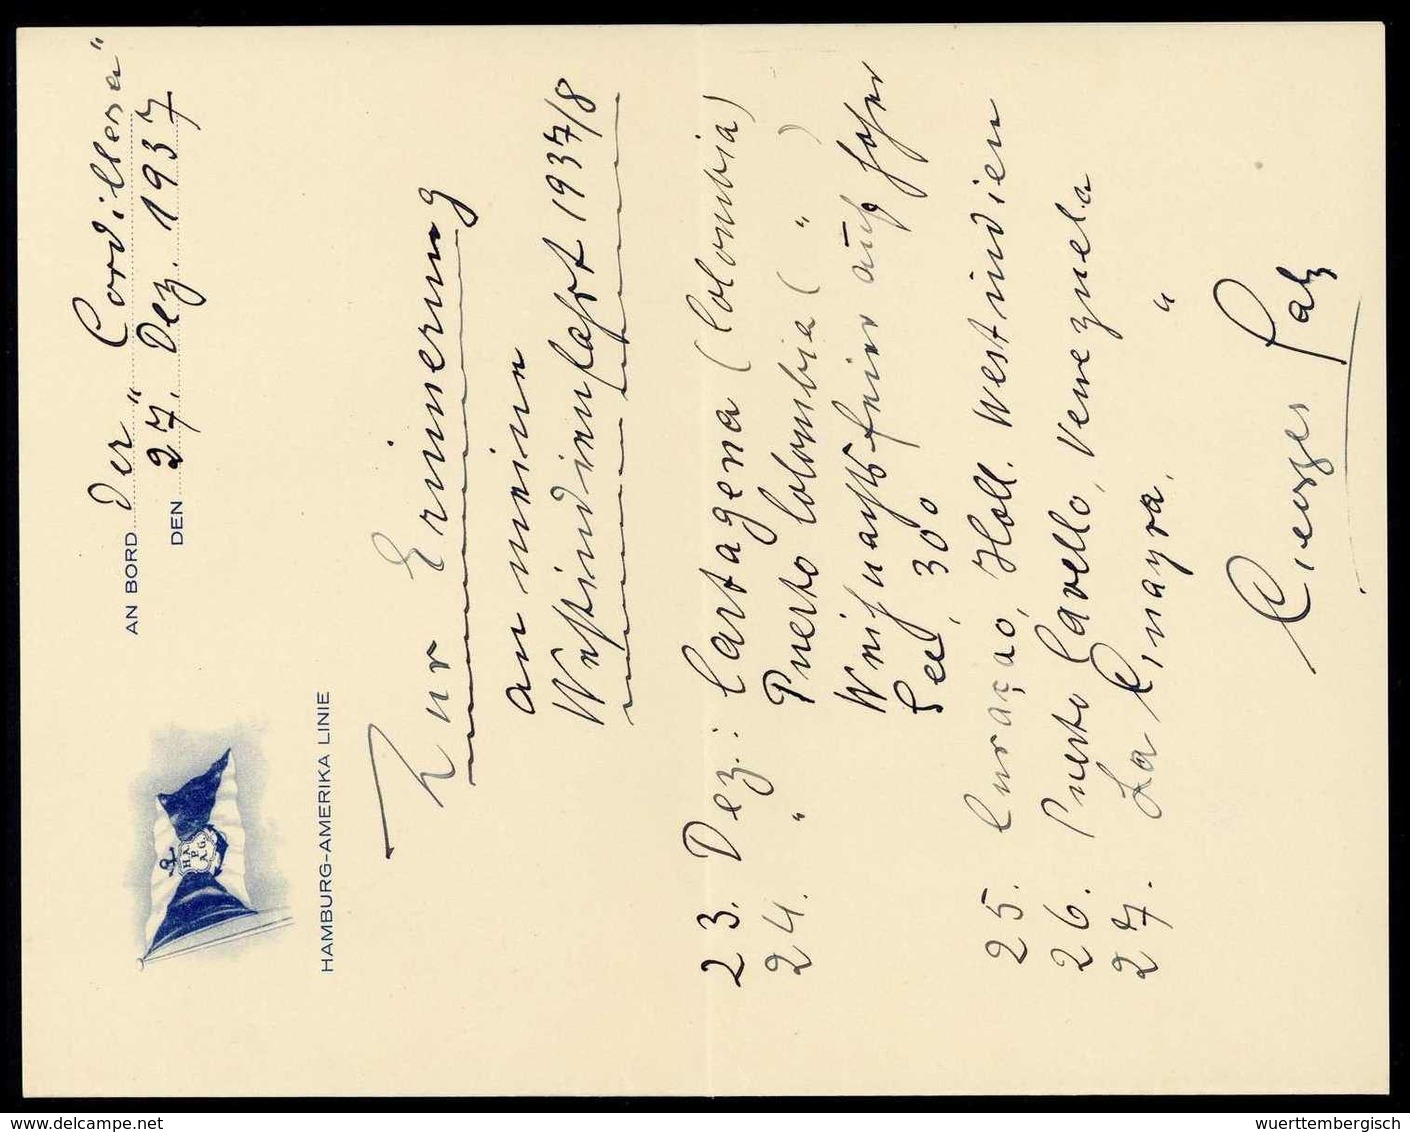 AN BORD der „Cordillera"
DEN 27. Dez. 1937
H A
P
A.G.
HAMBURG-AMERIKA LINIE
Zur Erinnerung
an meine
Westindienfahrt 1937/8
23. Dez.: Cartagena (Colombia)
24. " Puerto Colombia ( " )
Weihnachtsfeier auf hoher
See, 30°
25. Curaçao, Holl. Westindien
26. Puerto Cavello, Venezuela
27. La Guayra, "
delcampe.net
wuerttembergisch